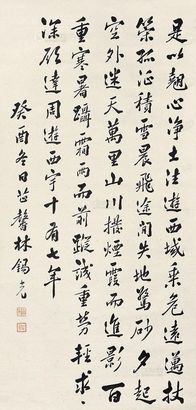 是以翹心淨土法遊西域乘危遠邁杖
策孤征積雪晨飛途間失地驚砂夕起
空外迷天萬里山川撥煙霞而進影百
重寒暑躡霜雨而前蹤誠重勞輕求
深願達周遊西宇十有七年
癸酉冬日 馨林錫光